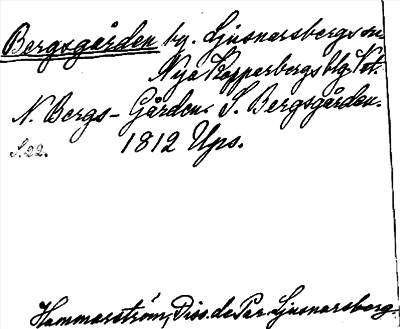 Bergsgården bg. Ljusnarsbergs sn
Nya Kopparbergs blg. Vst.
N. Bergs-Gården. S. Bergsgården.
S. 22. 1812 Ups.
Hammarström, Diss. de Par. Ljusnarsberg.